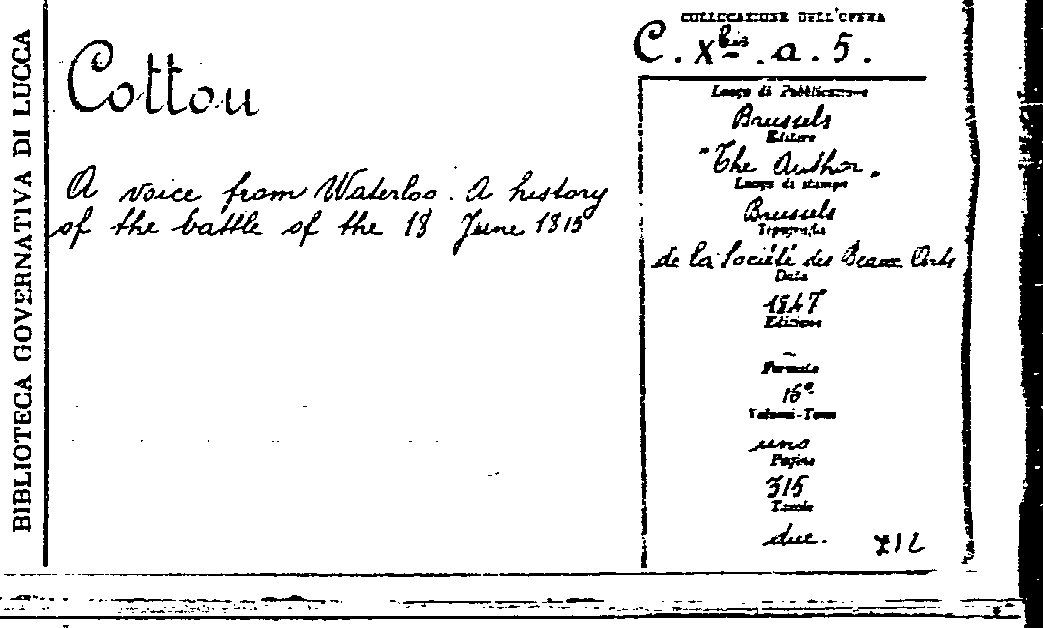 BIBLIOTECA GOVERNATIVA DI LUCCA
Cottou
A voice from Waterloo. A history
of the battle of the 18 June 1815
COLLOCAZIONE DELL'OPERA
C. X bis . a . 5 .
Luogo di Pubblicazione
Brussels
Editore
"The Author"
Luogo di stampa
Brussels
Tipografia
de la Société des Beaux Arts
Data
1847
Edizione
–
Formato
16°
Volumi-Tomi
uno
Pagine
315
Tavole
due.